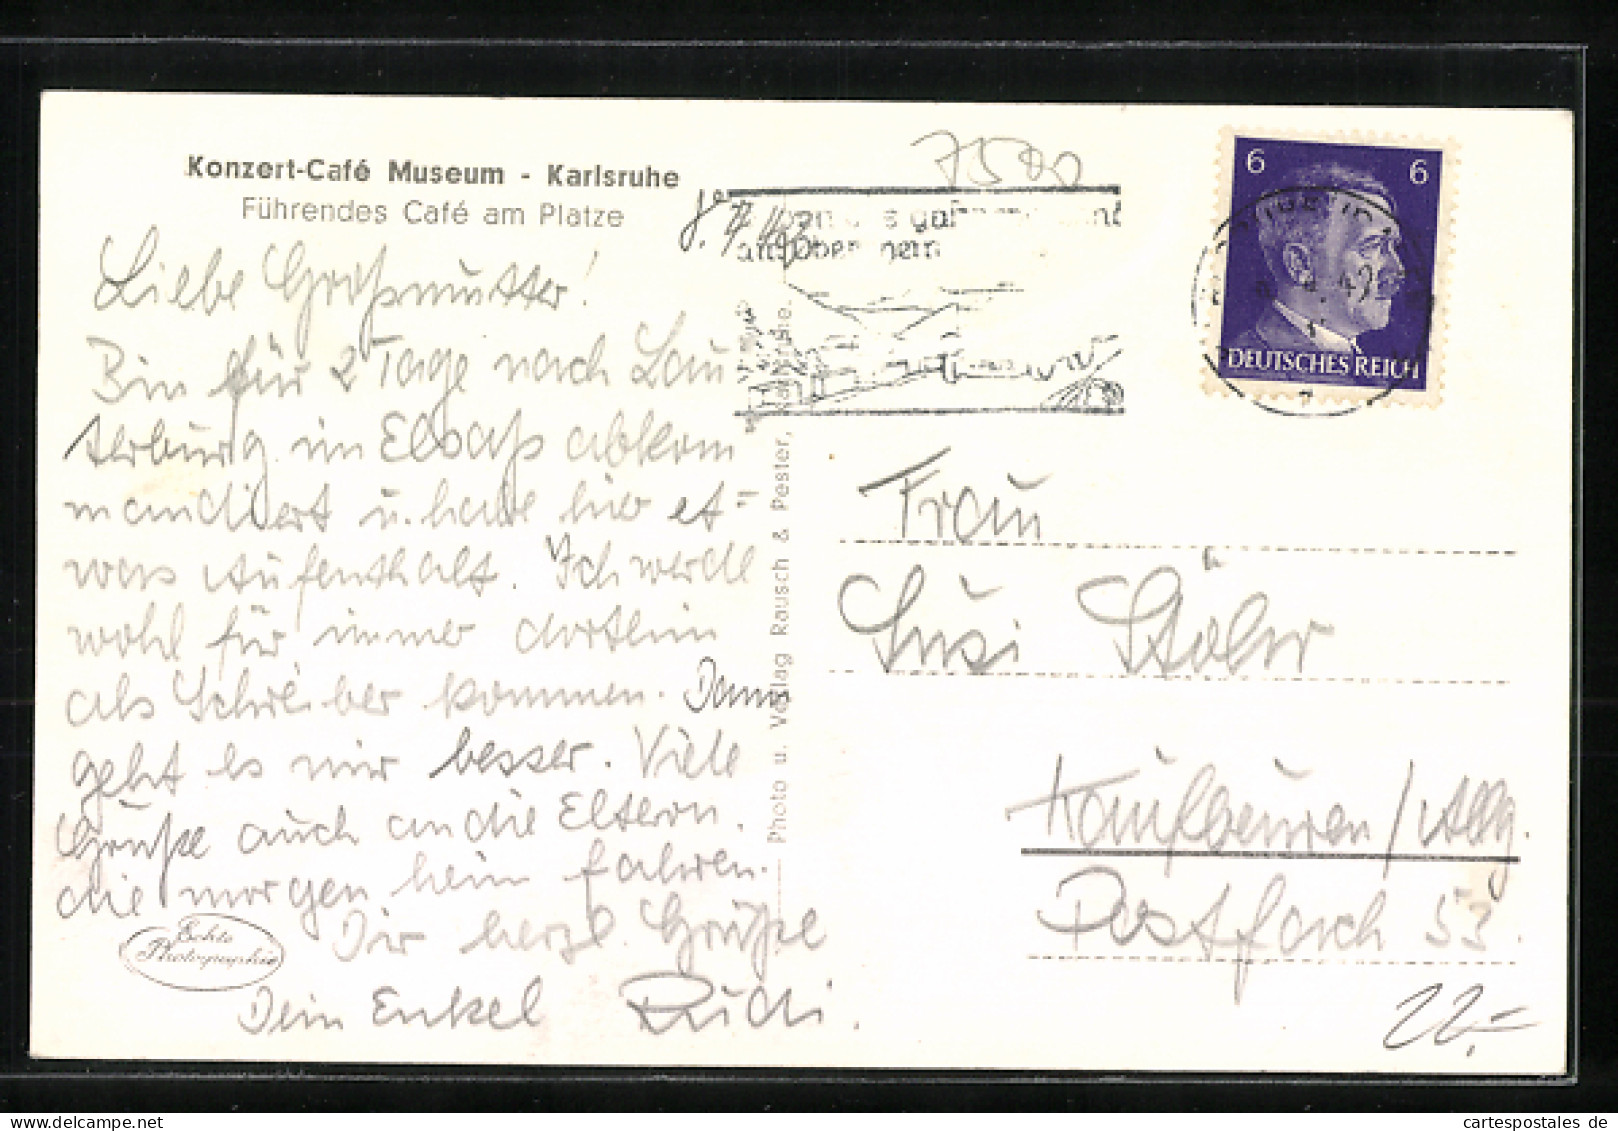 Konzert-Café Museum - Karlsruhe
Führendes Café am Platze
7500
Liebe Großmutter!
Bin für 2 Tage nach Lau
terburg im Elsaß abkom
mandiert u. habe hier et=
was Aufenthalt. Ich werde
wohl für immer dorthin
als Schreiber kommen. Dann
geht es mir besser. Viele
Grüße auch an die Eltern.
die morgen heim fahren.
Dir herzl. Grüße
Dein Enkel Rudi.
Echte
Photographie
Photo u. Verlag Rausch & Pester, Karlsruhe.
am Oberrhein
6 6
DEUTSCHES REICH
Frau
Susi Stöhr
Kaufbeuren/Allg.
Postfach 53.
22.-
cartespostales.de